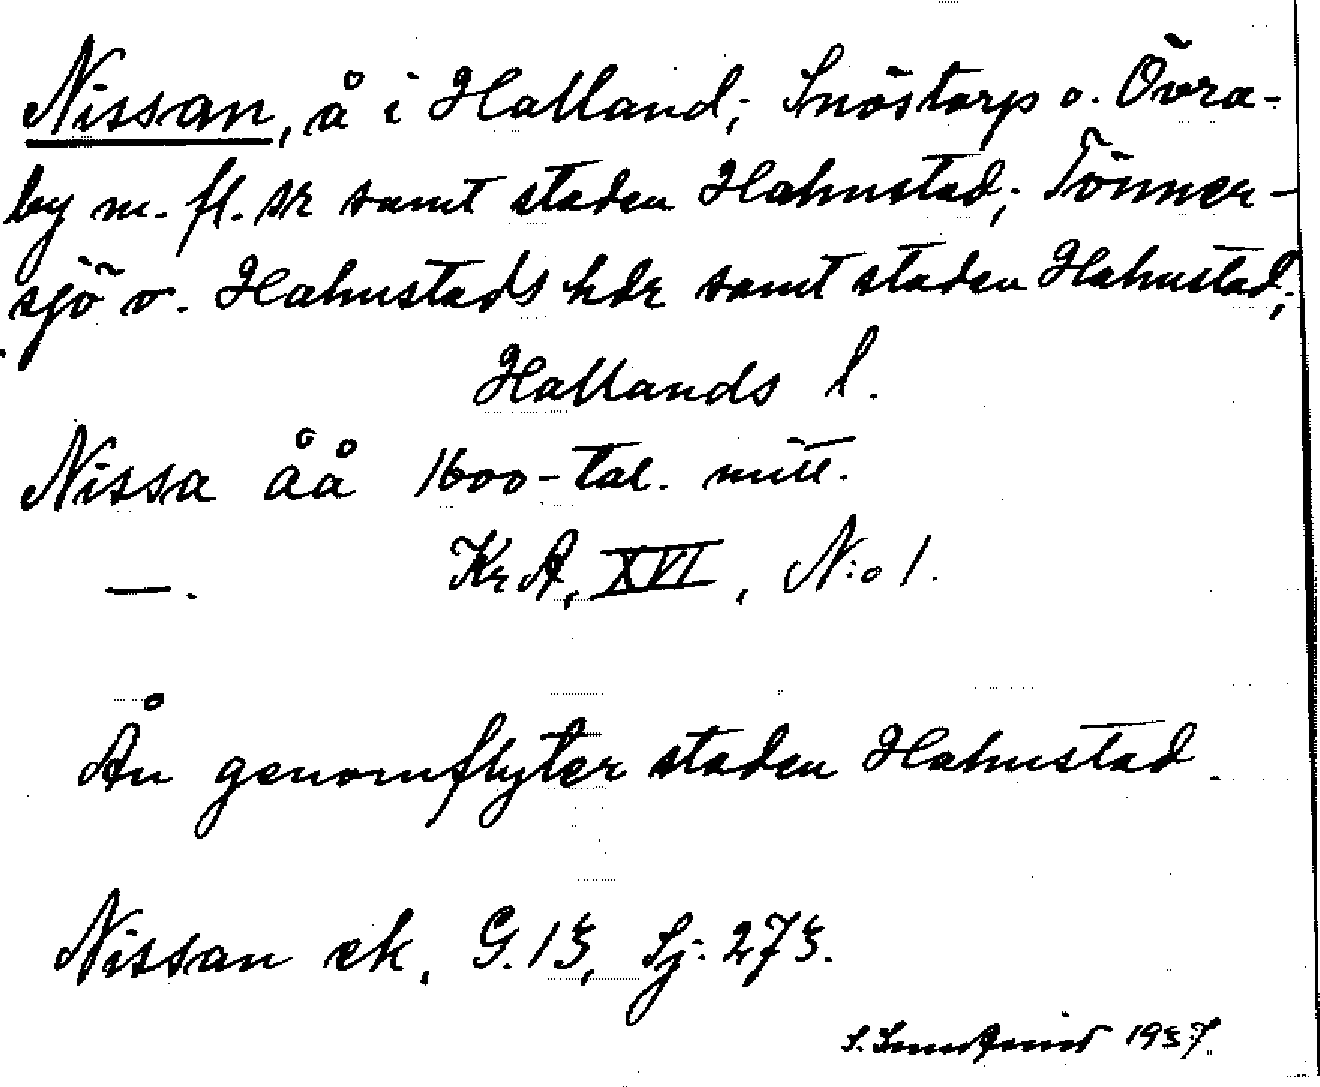 Nissan, å i Halland; Snöstorp o. Övra-
by m. fl. sr samt staden Halmstad; Tönner-
sjö o. Halmstads hdr samt staden Halmstad;
Hallands l.
Nissa åå 1600-tal. mitt.
—. Kr A, XVI, N:o 1.
Ån genomflyter staden Halmstad.
Nissan ek. G. 13, Sj. 273.
S. 1937.